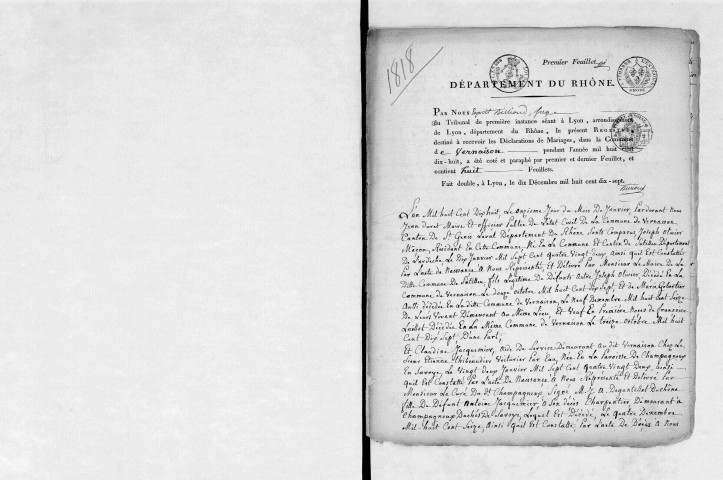 1818
Premier Feuillet.
DÉPARTEMENT DU RHÔNE.
PAR NOUS Juge
du Tribunal de première instance séant à Lyon, arrondissement
de Lyon, département du Rhône, le présent REGISTRE
destiné à recevoir les Déclarations de Mariages, dans la Commune
de Vernaison pendant l'année mil huit cent
dix-huit, a été coté et paraphé par premier et dernier Feuillet, et
contient huit Feuillets.
Fait double, à Lyon, le dix Décembre mil huit cent dix-sept.
L'an Mil huit Cent Dix huit, Le onzieme Jour du Mois De Janvier Pardevant Nous
Jean Maire et officier Public De L'état Civil De La Commune de Vernaison
Canton De St Genis Laval Département Du Rhône Sont Comparus Joseph olivier
Maçon, Résidant En Cette Commune, Né En La Commune et Canton de Satilieu Département
De L'ardeche, Le Dix Janvier Mil Sept Cent quatre Vingt Deux Ainsi quil est Constaté
Par L'acte De Naissance A Nous Représenté, et Délivré Par Monsieur Le Maire De La
Ditte Commune De Satilieu, fils Légitime De Défunts autre Joseph olivier, Décédé En La
Commune de Vernaison Le Douze octobre Mil huit Cent Dix Sept, Et de Marie
Aussi décédée En La ditte Commune De Vernaison, Le Neuf Décembre Mil huit Cent Seize
De Leurs Vivant Demeurant Au Même Lieu, et Veuf En Premiere Noces de Francoise
Décédée En La Même Commune de Vernaison Le Treize octobre Mil huit
Cent Dix Sept D'une Part;
Et Claudine Jacquemier, Aide De Service Demeurant Au dit Vernaison Chez Le
Sieur Etienne Thibeaudier Voiturier Par Eau, Née En La Paroisse De Champagneux
En Savoye, Le Vingt Deux Janvier Mil Sept Cent quatre Vingt Deux, ainsi
quil Est Constaté Par L'acte De Naissance A Nous Représenté et Délivré Par
Monsieur Le Curé Du dt Champagneux Signé M. J. A.
fille De Défunt Antoine Jacquemier, A Son décès Charpentier Demeurant à
Champagneux Duché De Savoye, Lequel Est Décédé, Le quatre Décembre
Mil huit Cent Seize, Ainsi quil est Constaté, Par L'acte De Décès A Nous